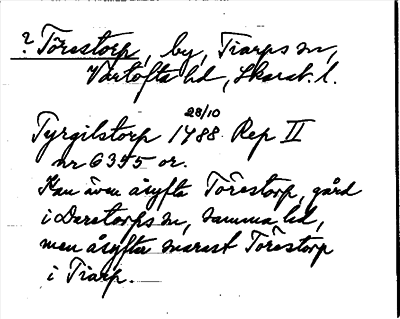 ? Törestorp, by, Tiarps sn,
Vartofta hd, Skarab. l.
28/10
Tyrgilstorp 1488 Rep II
nr 6355 or.
Kan även åsyfta Törestorp, gård
i Daretorps sn, samma hd,
men åsyftar snarast Törestorp
i Tiarp.